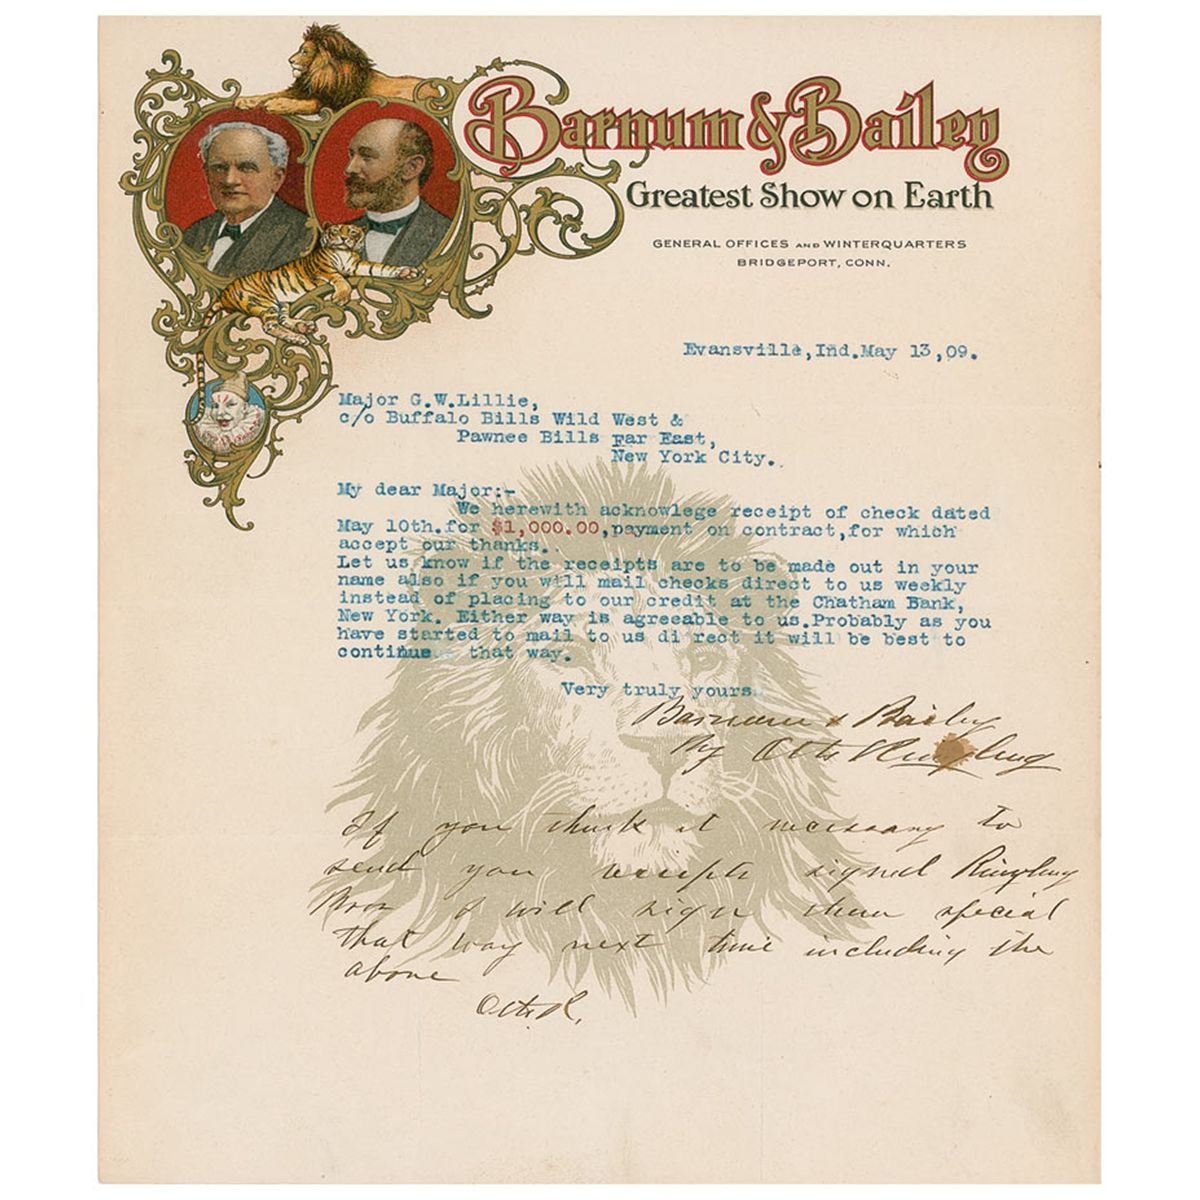 Barnum & Bailey
Greatest Show on Earth
GENERAL OFFICES AND WINTERQUARTERS
BRIDGEPORT, CONN.
Evansville,Ind.May 13,09.
Major G.W.Lillie,
c/o Buffalo Bills Wild West &
Pawnee Bills Far East,
New York City.
My dear Major:-
We herewith acknowlege receipt of check dated
May 10th.for $1,000.00,payment on contract,for which
accept our thanks.
Let us know if the receipts are to be made out in your
name also if you will mail checks direct to us weekly
instead of placing to our credit at the Chatham Bank,
New York. Either way is agreeable to us.Probably as you
have started to mail to us di rect it will be best to
continue that way.
Very truly yours
Barnum & Bailey
By Otto Ringling
If you think it necessary to
send you receipts signed Ringling
Bros I will sign them special
that way next time including the
above
Otto R.